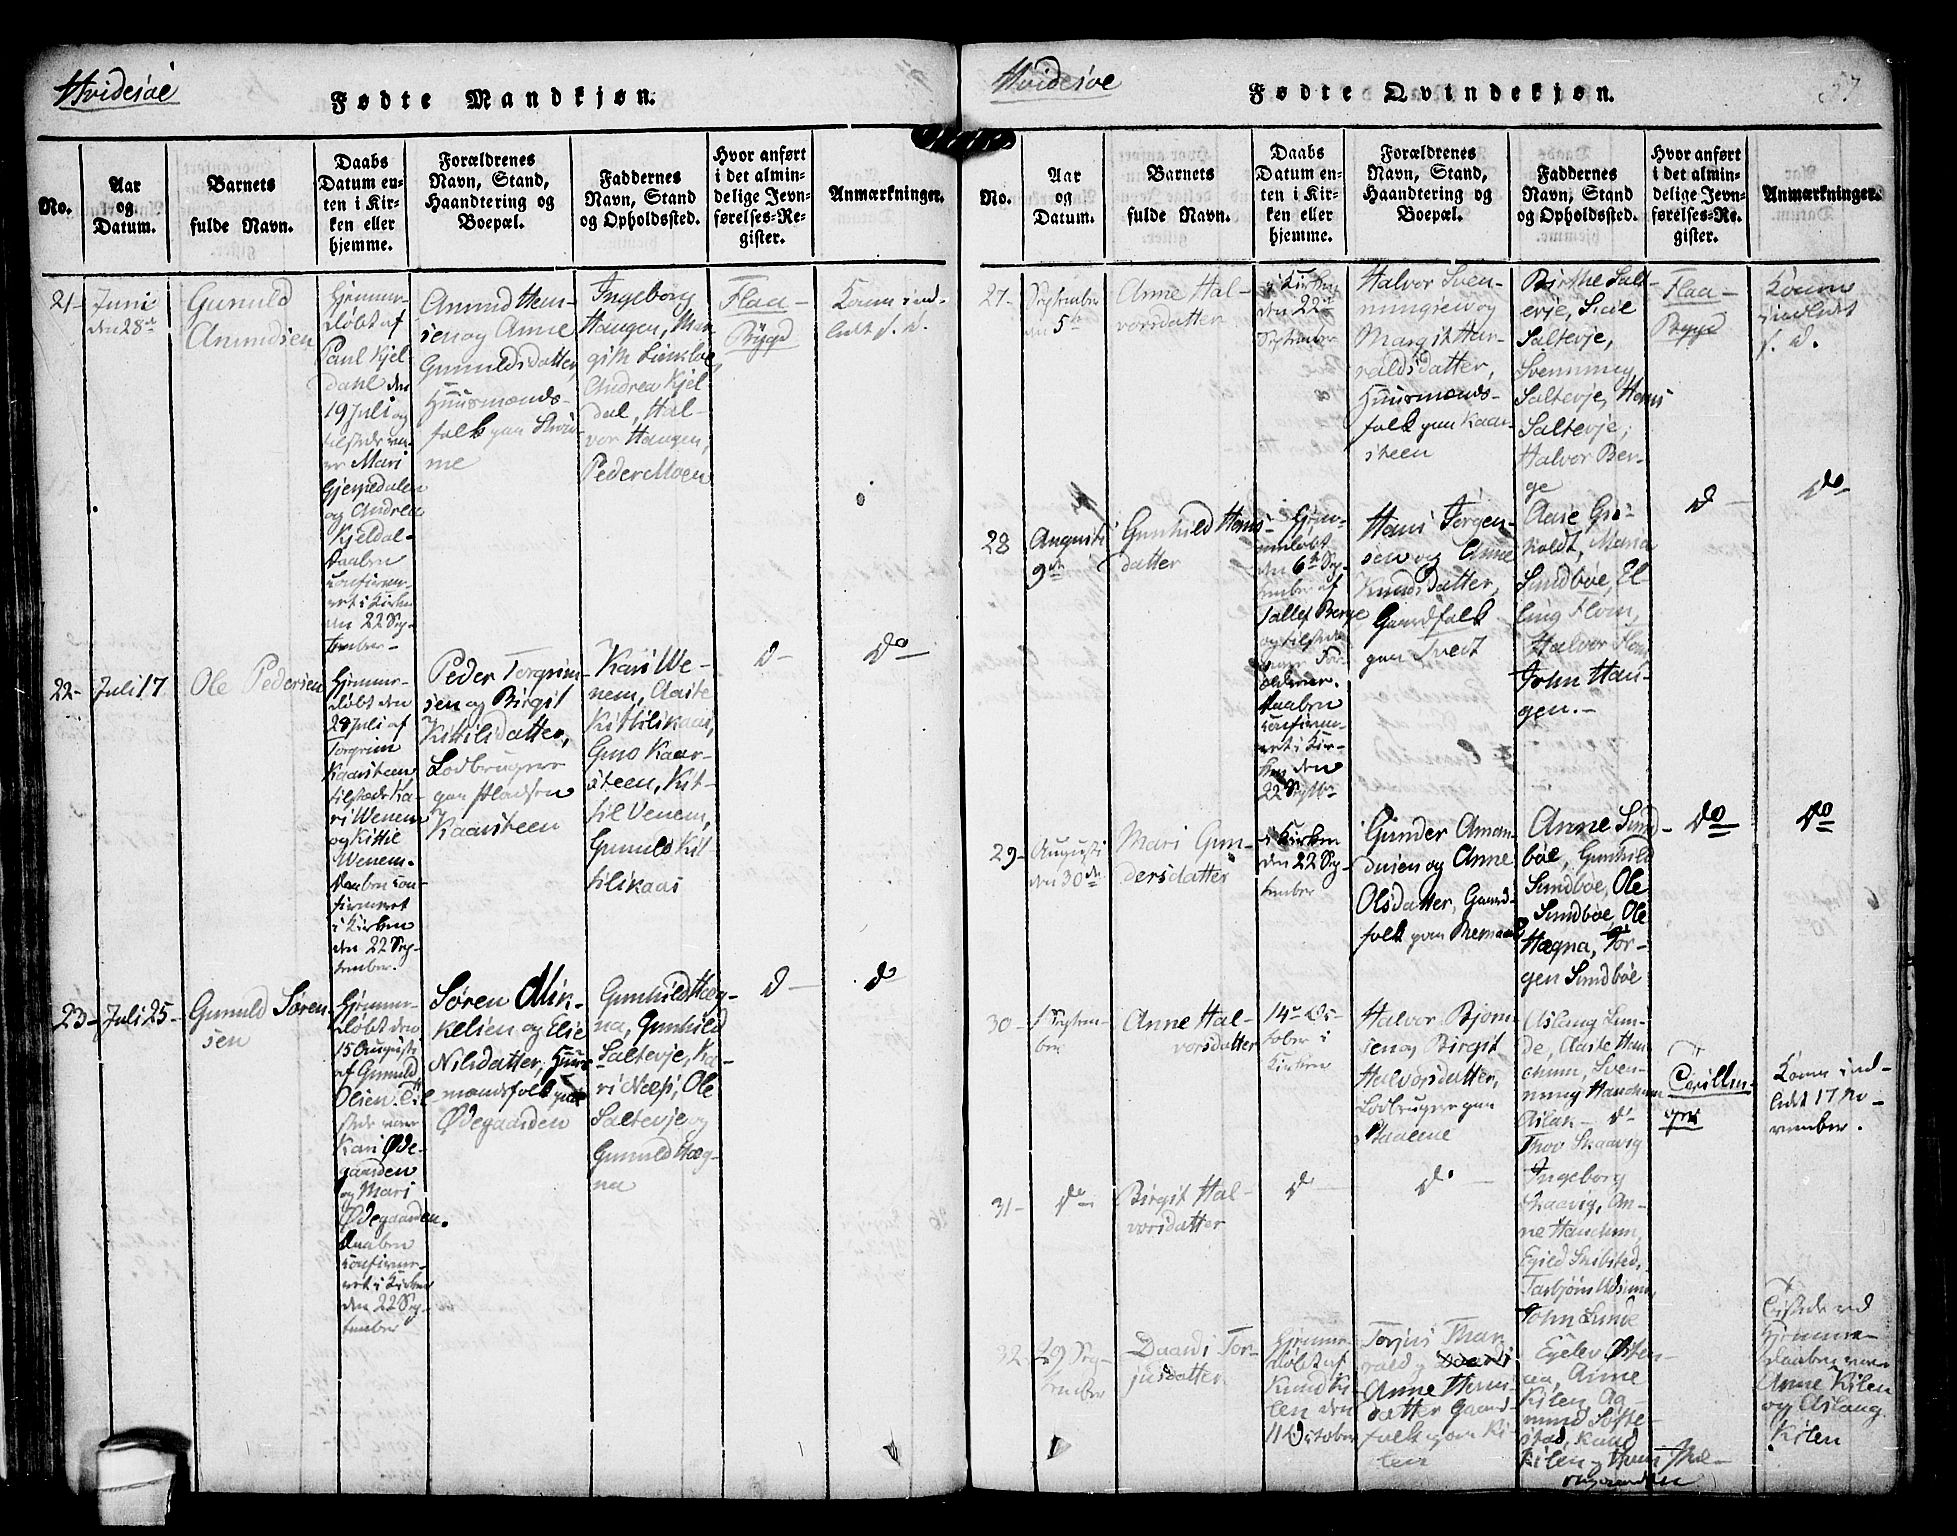 Hvidesøe
Fødte Mandkjøn.
No.
Aar
og
Datum.
Barnets
fulde Navn.
Daabs
Datum en-
ten i Kir-
ken eller
hjemme.
Forældrenes
Navn, Stand,
Haandtering og
Boepæl.
Faddernes
Navn, Stand
og Opholdssted.
Hvor anført
i det almin-
delige Jevn-
førelses-Re-
gister.
Anmærkninger.
21-
Juni
den 28de
Gunuld
Amundsen
Hjemme-
døbt af
Paul Kjel-
dahl den
19 Juli og
tilstede va-
re Mari
Gjerpedalen
og Andrea
Kjeldal-
Daaben
confirme-
ret i Kirken
den 22 Sep-
tember-
Amund Hans-
sen og Anne
Gunuldsdatter,
Huusmands-
folk paa
Ingeborg
Haugen, Mar-
git
Andrea Kjel
dal, Hal-
vor Haugen,
Peder Moen
Flaa-
Bygd
Komm ind-
22-
Juli 17
Ole Pedersen
Hjemme-
døbt den
28 Juli af
Torgrim
Kaarsteen
tilstede Ka-
ri Wenem
og Kittil
Wenem-
Daaben con-
firmeret
i Kirken
den 22 Sep-
tember.
Peder Torgrim-
sen og Birgit
Kittilsdatter,
Lodbrugere
paa Pladsen
Kaarsteen
Kari We-
nem, Aaste
Kittilskaas,
Guno Kaar-
steen, Kit-
til Venem,
Gunuld Kit
tilskaas
d-
do
23-
Juli 25-
Gunuld Søren
sen
Hjemme-
døbt den
15 Augusti
af Gunuld
Olsen. Til
stede vare
Kari Øde-
gaarden
og Mari
Ødegaarden.
Daaben
confirme-
ret i Kirken
den 22 Sep-
tember
Søren Mik-
kelsen og Else
Nilsdatter, Huus-
mandsfolk paa
Ødegaarden
Gunhild Hæg-
na, Gunhild
Saltevje, Ka-
ri Næss, Ole
Saltevje og
Gunuld Hæg-
na
d-
do
Hvidesøe
Fødte Qvindekjøn.
57
No.
Aar
og
Datum.
Barnets
fulde Navn.
Daabs
Datum en-
ten i Kir-
ken eller
hjemme.
Forældrenes
Navn, Stand,
Haandtering og
Boepæl.
Faddernes
Navn, Stand
og Opholdssted.
Hvor anført
i det almin-
delige Jevn-
førelses-Re-
gister.
Anmærkninger.
27-
September
den 5te
Anne Hal-
vorsdatter
i Kirken
22de
September
Halvor Sven-
ningsen og
Margit Har-
raldsdatter,
Huusmands-
folk paa Kaar-
steen
Birthe Salt-
evje,
Saltevje,
Svenning
Saltevje, Hans
Saltevje,
Halvor Ber-
ge
Flaa-
Bygd
Komm
indledt
28
Augusti
9de
Gunhild Hans-
datter
Hjem-
medøbt
den 6te Sep-
tember af
Tallef Berge
og tilstede
vare For-
ældrene.
Daaben
confirme-
ret i Kir-
ken den
22 Septbr
Hans Jørgen-
sen og Anne
Knudsdatter,
Gaardfolk
paa Tveit
Aase Gro-
tholdt, Maria
Sundbøe, El-
ling Flom,
Halvor Flom
John Hau-
gen.-
d-
do-
29-
Augusti
den 30de
Mari Gun-
dersdatter
i Kirken
den 22 Sep-
tember
Gunder Aman-
dusen og Anne
Olsdatter, Gaard-
folk paa
Anne Sund-
bøe, Gunhild
Sundbøe, Ole
Sundbøe, Ole
Hægna, Tor-
gen Sundbøe
do
do
30-
1 Septem-
ber
Anne Hal-
vorsdatter
14de Oc-
tober i
Kirken
Halvor Bjørn-
sen og Birgit
Halvorsdatter,
Lodbrugere paa
Aslaug Lun-
de, Aaste Hau-
chum, Sven-
ning Hauchum
Aslak- do
Thov Skaarig
Komm ind-
ledt 17 No-
vember.
31-
do-
Birgit Hal-
vorsdatter
d-
do-
Ingeborg
Skaarig, An-
ne Hauchum,
John Lunde
32-
29 Sep-
tember
Daardi Tor-
jusdatter
Hjemme-
døbt af
Knud Ki-
len den
11 October
Torjus Har-
rald og
Anne Hans-
datter Gaard-
folk paa Ki-
len
Anne
Kilen, Aa-
mund
Knud
Kilen
Tilstede ved
Hjemme-
daaben vare
Anne Kilen
og Aslaug
Kilen